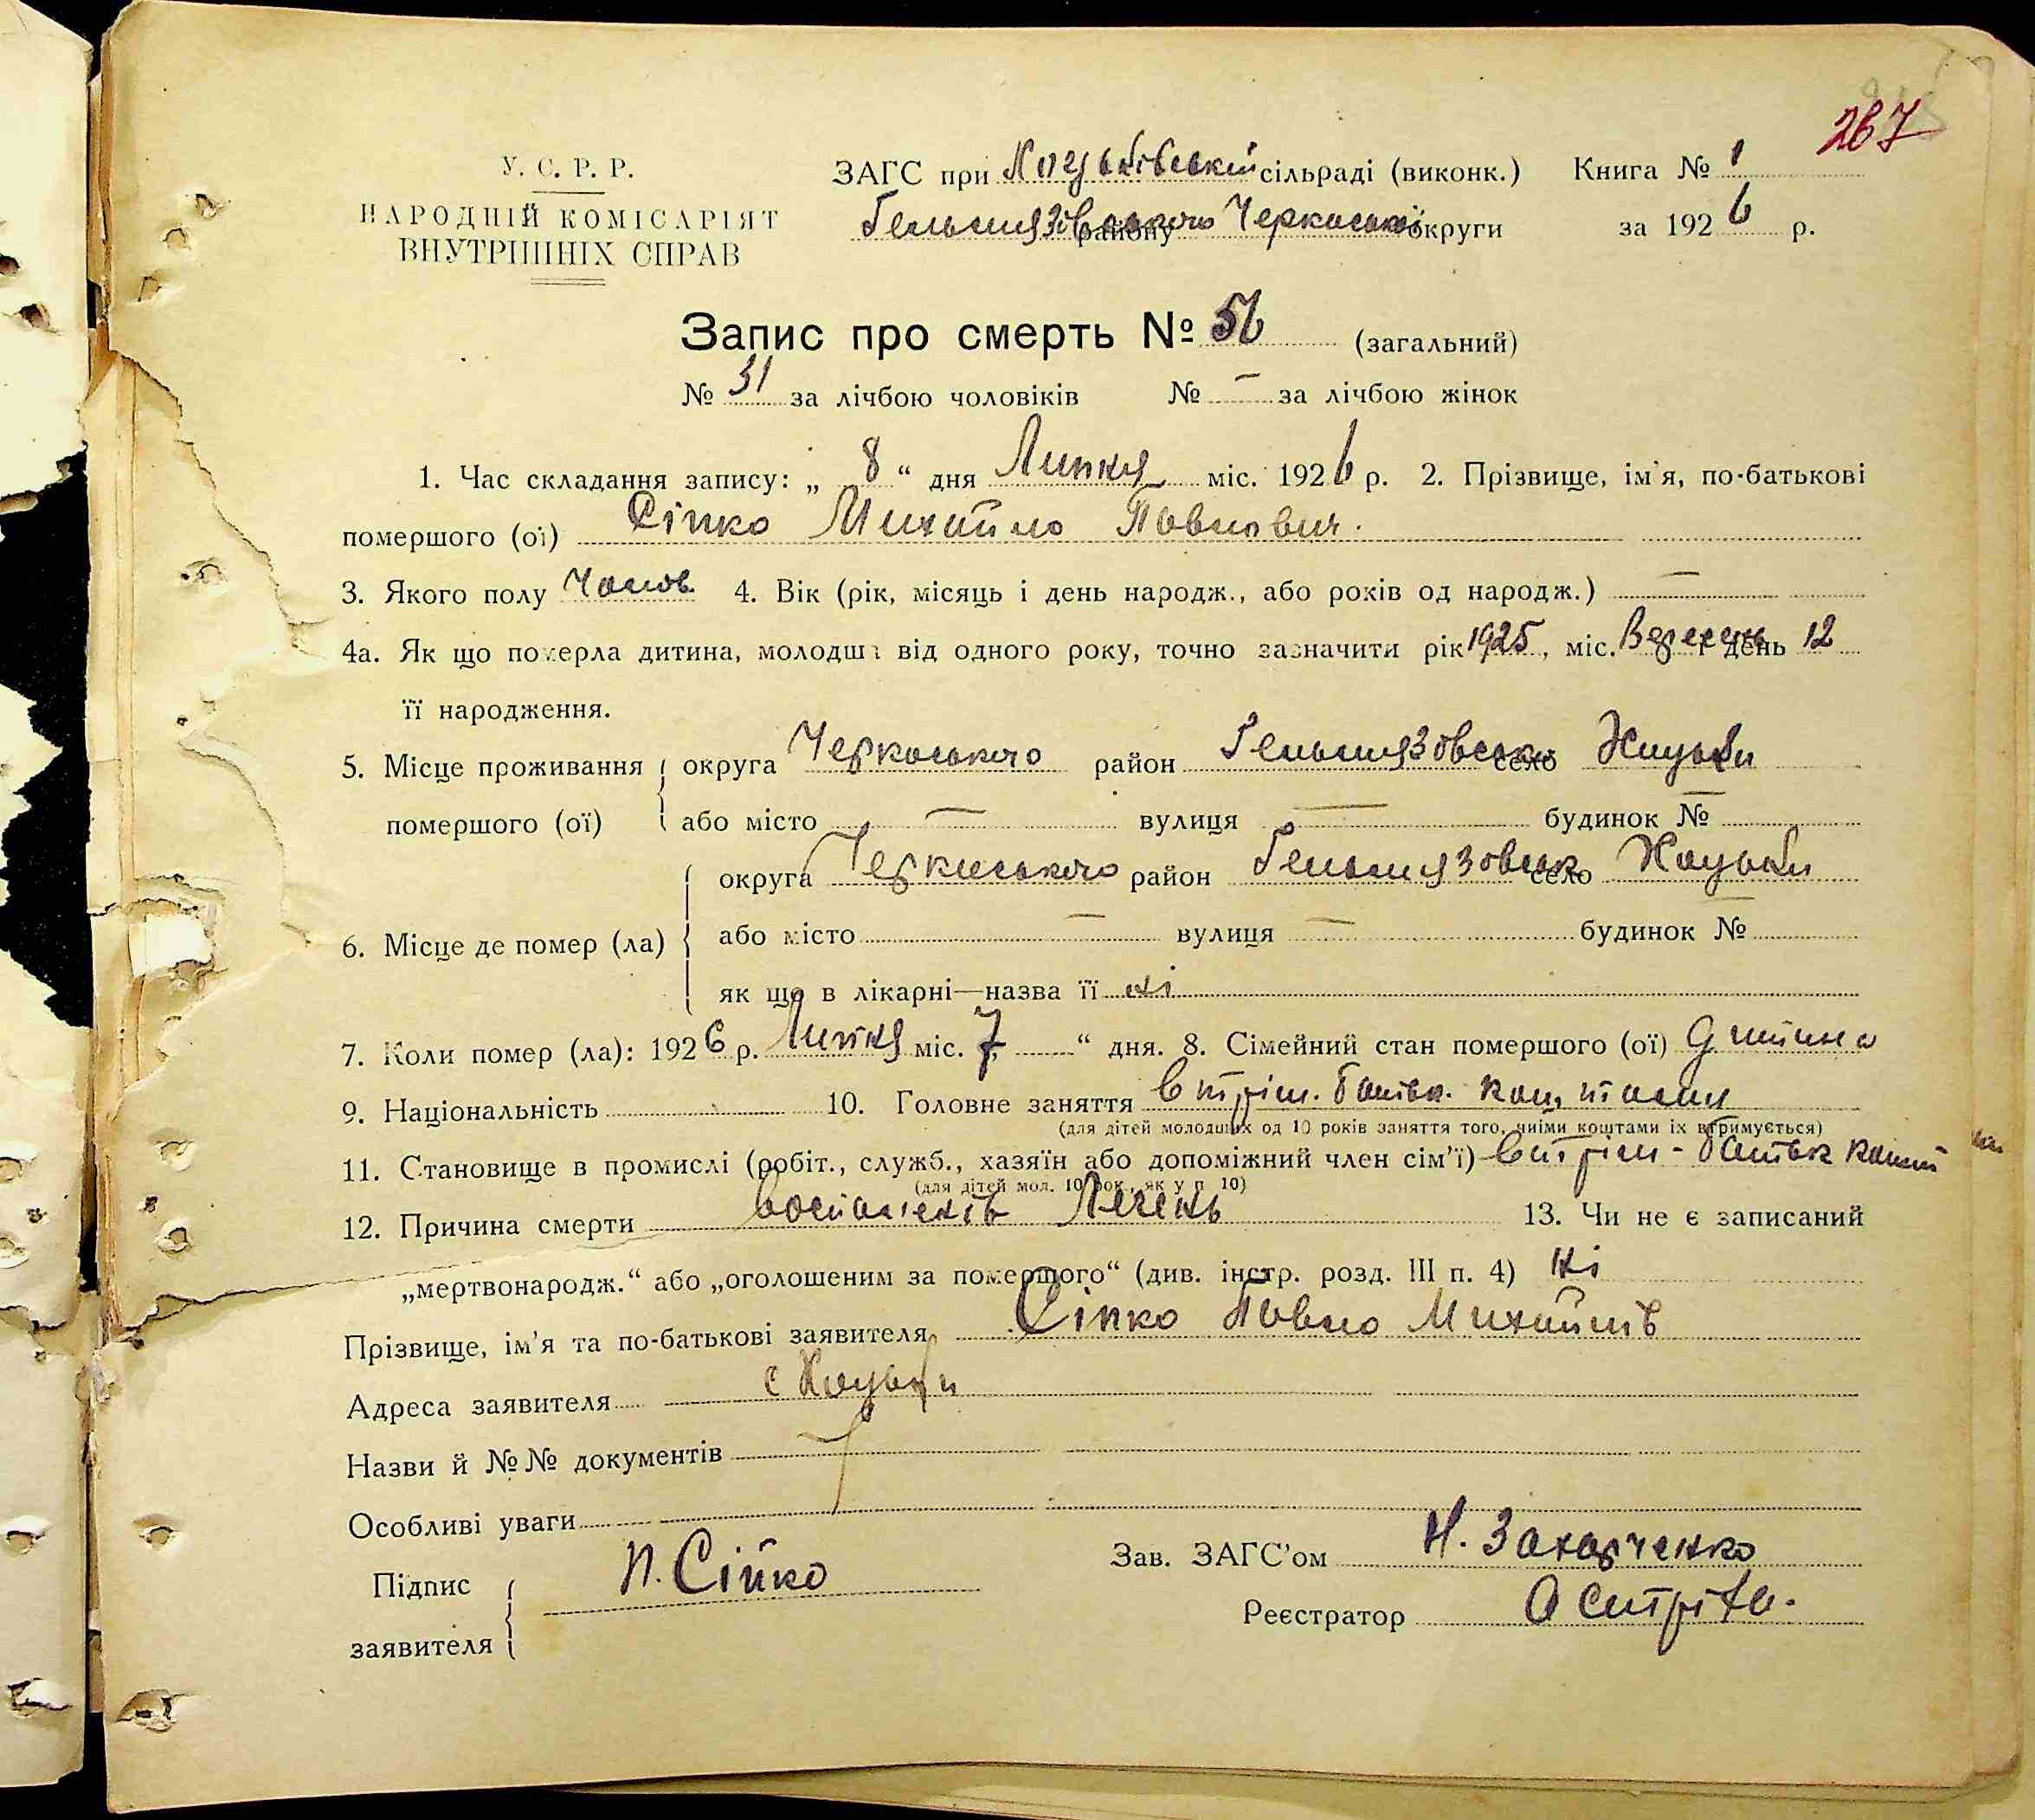 267
У. С. Р. Р.
НАРОДНІЙ КОМІСАРІЯТ
ВНУТРІШНІХ СПРАВ
ЗАГС при Коцубівській сільраді (виконк.) Книга № 1
Гельмязовського району Черкаської округи за 1926 р.
Запис про смерть № 56 (загальний)
№ 31 за лічбою чоловіків № — за лічбою жінок
1. Час складання запису: „ 8 “ дня Липня міс. 1926 р. 2. Прізвище, ім'я, по-батькові
помершого (ої) Сіпко Михайло Павлович.
3. Якого полу Чолов 4. Вік (рік, місяць і день народж., або років од народж.) —
4а. Як що померла дитина, молодша від одного року, точно зазначити рік 1925, міс. Вересень день 12
її народження.
5. Місце проживання округа Черкаського район Гельмязовсько село
помершого (ої) або місто — вулиця — будинок № —
округа Черкаського район Гельмязовськ село
6. Місце де помер (ла) або місто — вулиця — будинок № —
як що в лікарні—назва її ні
7. Коли помер (ла): 1926 р. Липня міс. 7 “ дня. 8. Сімейний стан помершого (ої) Дитина
9. Національність 10. Головне заняття Утрим. батьк. коштами
(для дітей молодших од 10 років заняття того, чиїми коштами їх втримується)
11. Становище в промислі (робіт., служб., хазяїн або допоміжний член сім'ї) Утрим - батьк кошт
(для дітей мол. 10 рок., як у п 10)
12. Причина смерти Воспаленів Легень 13. Чи не є записаний
„мертвонародж.“ або „оголошеним за помершого“ (див. інстр. розд. III п. 4) Ні
Прізвище, ім'я та по-батькові заявителя Сіпко Павло Михайлів
Адреса заявителя с
Назви й №№ документів
Особливі уваги
Підпис П. Сіпко Зав. ЗАГС'ом Н. Захарченко
заявителя Реєстратор